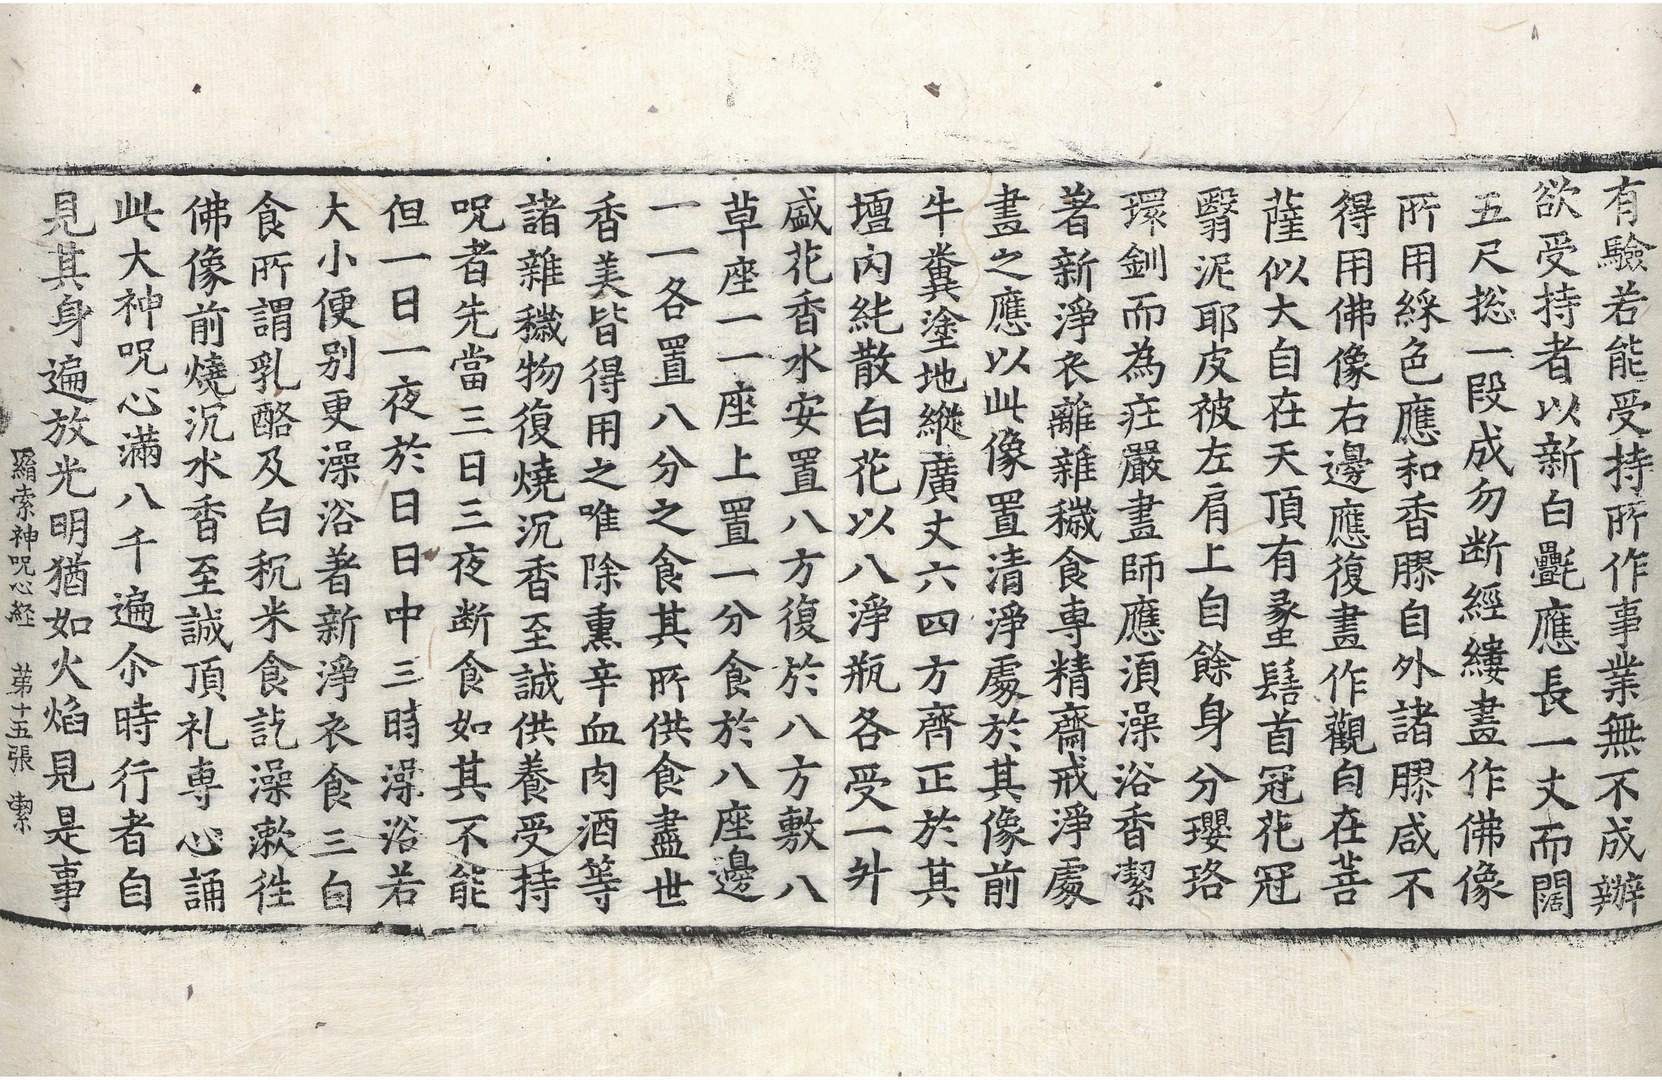 有驗若能受持所作事業無不成辦
欲受持者以新白㲲應長一丈而闊
五尺揔一段成勿断經縷畫作佛像
所用綵色應和香膠自外諸膠咸不
得用佛像右邊應復畫作觀自在菩
薩似大自在天頂有𩭤髻首冠花冠
翳泥耶皮被左肩上自餘身分瓔珞
環釧而為庄嚴畫師應湏澡浴香潔
著新淨衣離雜穢食專精齋戒淨處
畫之應以此像置清淨處於其像前
牛糞塗地縱廣丈六四方齊正於其
壇内純散白花以八淨瓶各受一㪷
盛花香水安置八方復於八方敷八
草座一一座上置一分食於八座邊
一一各置八分之食其所供食盡世
香美皆得用之唯除熏辛血肉酒等
諸雜穢物復燒沉香至誠供養受持
呪者先當三日三夜断食如其不能
但一日一夜於日日中三時澡浴若
大小便别更澡浴著新淨衣食三白
食所謂乳酪及白秔米食訖澡漱徃
佛像前燒沉水香至誠頂礼専心誦
此大神呪心滿八千遍尒時行者自
見其身遍放光明猶如火焰見是事
羂索神呪心経 苐十五張 絜